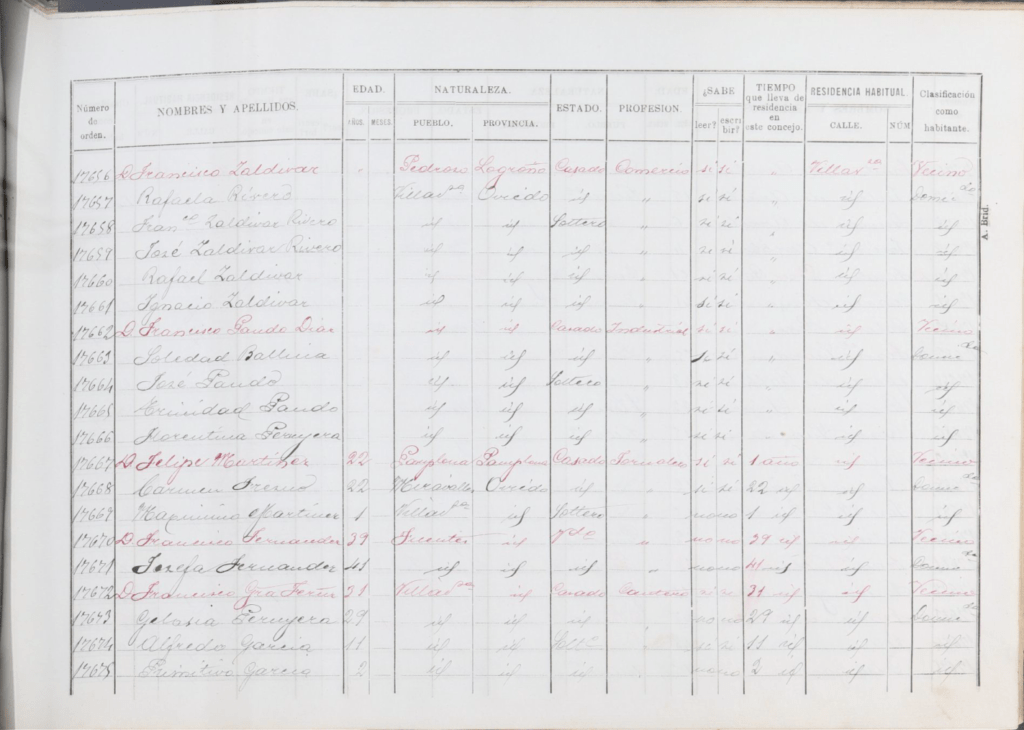 Número de orden. NOMBRES Y APELLIDOS. EDAD. AÑOS. MESES. NATURALEZA. PUEBLO. PROVINCIA. ESTADO. PROFESION. ¿SABE leer? escribir? TIEMPO que lleva de residencia en este concejo. RESIDENCIA HABITUAL. CALLE. NÚM Clasificación como habitante.
17656 D. Francisco Zaldivar " " Pedroso Logroño Casado Comercio si si " Villavsa Vecino
17657 Rafaela Rivero Villavsa Oviedo id " si si " id Domicda
17658 Franco Zaldivar Rivero id id Soltero " si si " id id
17659 José Zaldivar Rivero id id id " si si " id id
17660 Rafael Zaldivar id id id " si si id id
17661 Ignacio Zaldivar id id id si si id id
17662 D. Francisco Pando Diaz id id Casado Industrial si si " id Vecino
17663 Soledad Ballina id id id " si si " id Domicda
17664 José Pando id id Soltero " si si " id id
17665 Trinidad Pando id id id " si si " id id
17666 Florentina Peruyera id id id " si si " id id
17667 D. Felipe Martinez 22 Pamplona Pamplona Casado Jornalero si si 1 año id Vecino
17668 Carmen Fresno 22 Miravalles Oviedo id " si si 22 id id Domicda
17669 Maximino Martinez 1 Villavsa id Soltero " no no 1 id id id
17670 D. Francisco Fernandez 39 Fuentes id Vdo " no no 39 id id Vecino
17671 Josefa Fernandez 41 id id id " no no 41 id id Domicda
17672 D. Francisco Gra 31 Villavsa id Casado Cantero si si 31 id id Vecino
17673 Gelasia Peruyera 29 id id id " no no 29 id id Domicda
17674 Alfredo Garcia 11 id id Solto " si si 11 id id id
17675 Primitivo Garcia 2 id id id " no no 2 id id id
A. Brid.